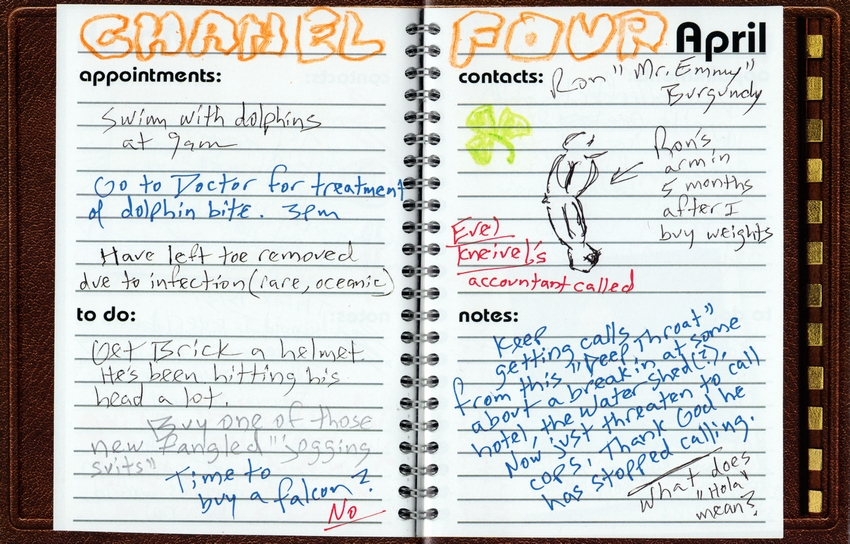 CHANEL FOUR April
appointments:
Swim with dolphins
at 9am
Go to Doctor for treatment
of dolphin bite. 3pm
Have left toe removed
due to infection (rare, oceanic)
to do:
Get Brick a helmet.
He's been hitting his
head a lot.
Buy one of those
new fangled "jogging
suits"
Time to
buy a falcon?
No
contacts:
Ron "Mr. Emmy"
Burgundy
Ron's
arm in
5 months
after I
buy weights
Evel
Kneivel's
accountant called
notes:
Keep
getting calls
from this "Deep Throat"
about a break in at some
hotel, the Water Shed(?).
Now just threaten to call
cops. Thank God he
has stopped calling.
What does
"Hola"
mean?